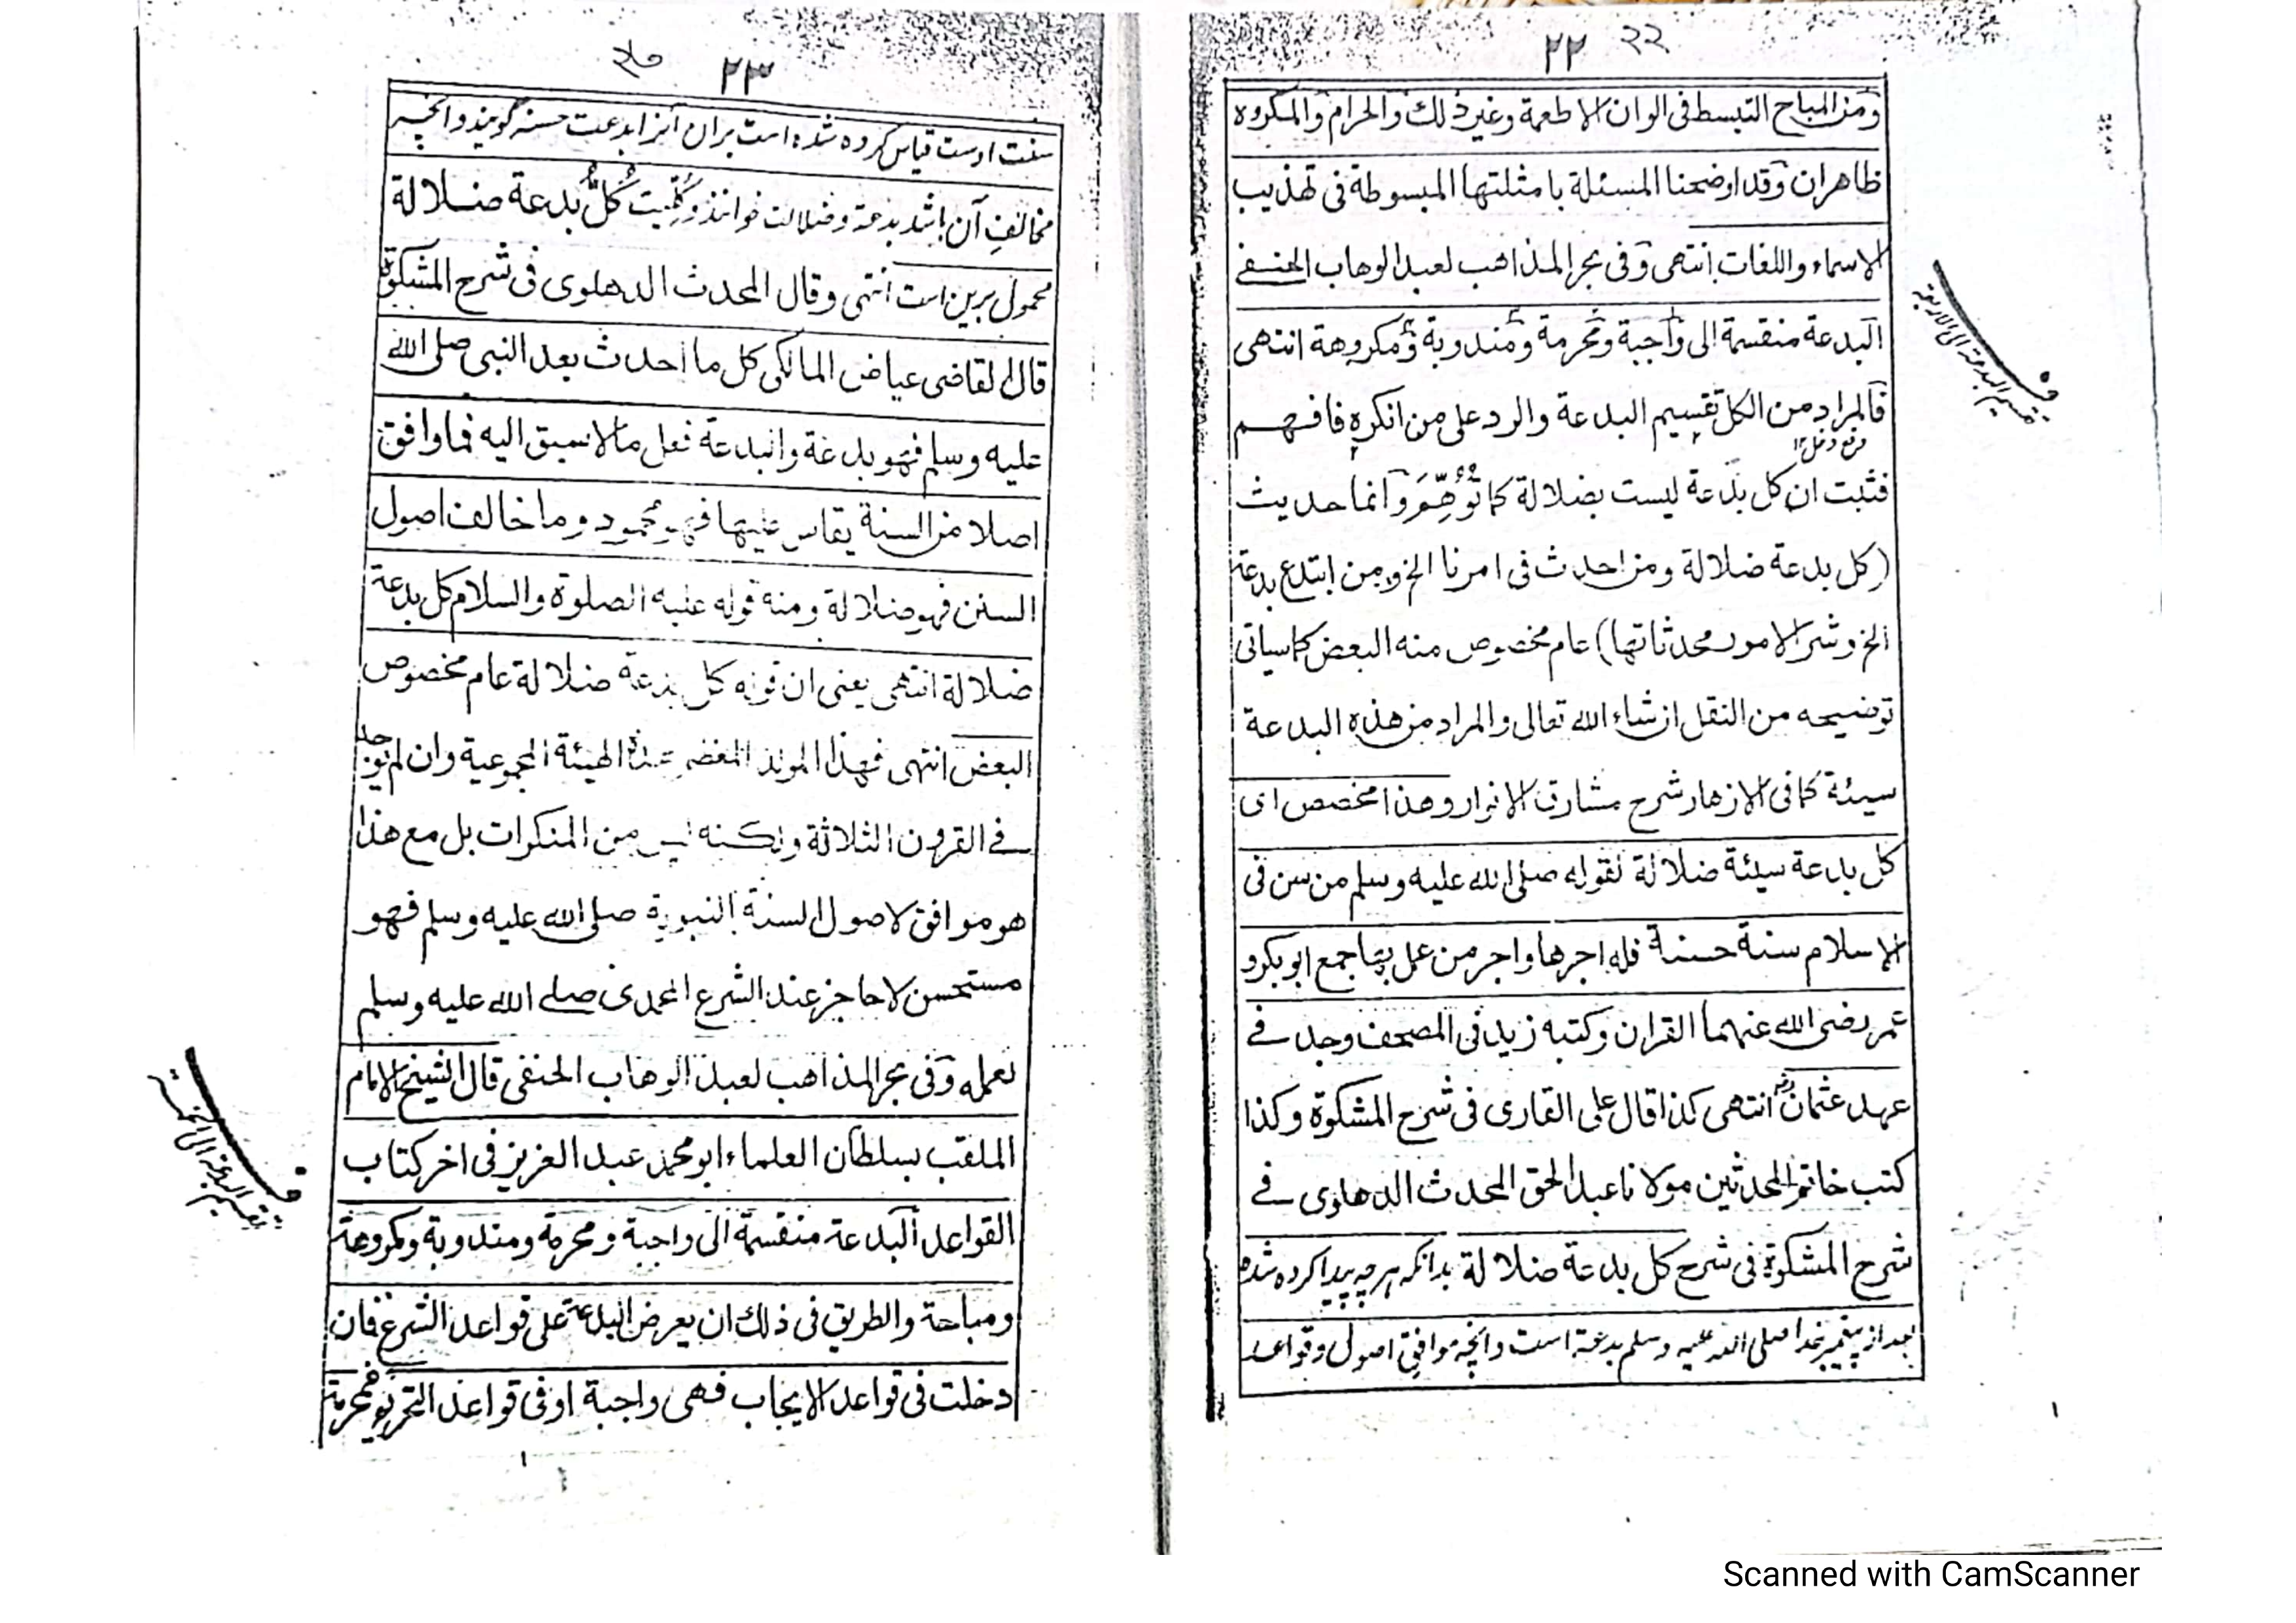 ٢٢ ٢٢
ومن المباح التبسط فى الوان الاطعمة وغير ذلك والحرام والمكروه
ظاهران وقد اوضحنا المسئلة بامثلتها المبسوطة فى تهذيب
الاسماء واللغات انتهى وفى بحر المذاهب لعبد الوهاب الحنفے
البدعة منقسمة الى واجبة ومحرمة ومندوبة ومكروهة انتهى
تقسيم البدعة الى الاربعة
فالمراد من الكل تقسيم البدعة والرد على من انكره فافهم
فثبت ان كل بدعة ليست بضلالة كما تُوُهِّمَ وانما حديث
(كل بدعة ضلالة ومن احدث فى امرنا الخ ومن ابتدع بدعة
الخ وشر الامور محدثاتها) عام مخصوص منه البعض كما سياتى
توضيحه من النقل ان شاء الله تعالى والمراد من هذه البدعة
سيئة كما فى الازهار شرح مشارق الانوار وهذا مخصص اى
كل بدعة سيئة ضلالة لقوله صلى الله عليه وسلم من سن فى
الاسلام سنة حسنة فله اجرها واجر من عمل بها جمع ابو بكر و
عمر رضى الله عنهما القران وكتبه زيد فى المصحف وجدد فے
عهد عثمان رض انتهى كذا قال على القارى فى شرح المشكوة وكذا
كتب خاتم المحدثين مولانا عبد الحق المحدث الدهلوى فے
شرح المشكوة فى شرح كل بدعة ضلالة بدانکہ ہرچہ پیدا کردہ شدہ
بعد از پیغمبر خدا صلی اللہ علیہ وسلم بدعۃ است وانچہ موافق اصول وقواعد
٢٣
سنت اوست قیاس کردہ شدہ است بران آنرا بدعت حسنہ گویند وانچہ
مخالف آن باشد بدعۃ وضلالت خوانند وکلیت كُلُّ بدعة ضلالة
محمول برین است انتهى وقال المحدث الدهلوى فى شرح المشكوة
قال القاضى عياض المالكى كل ما احدث بعد النبى صلى الله
عليه وسلم فهو بدعة والبدعة فعل ما لا سبق اليه فما وافق
اصلا من السنة يقاس عليها فهو محمود وما خالف اصول
السنن فهو ضلالة ومنه قوله عليه الصلوة والسلام كل بدعة
ضلالة انتهى يعنى ان قوله كل بدعة ضلالة عام مخصوص
البعض انتهى فهذا المولد الهيئة المجموعية وان لم يوجد
فے القرون الثلاثة ولكنه ليس من المنكرات بل مع هذا
هو موافق لاصول السنة النبوية صلى الله عليه وسلم فهو
مستحسن لا حاجز عند الشرع المحمدى صلے الله عليه وسلم
لعمله وفى بحر المذاهب لعبد الوهاب الحنفى قال الشيخ الامام
الملقب بسلطان العلماء ابو محمد عبد العزيز فى اخر كتاب
القواعد البدعة منقسمة الى واجبة ومحرمة ومندوبة ومكروهة
تقسيم البدعة الى الخمسة
ومباحة والطريق فى ذلك ان يعرض البدعة على قواعد الشرع فان
دخلت فى قواعد الايجاب فهى واجبة او فى قواعد التحريم فمحرمة
Scanned with CamScanner